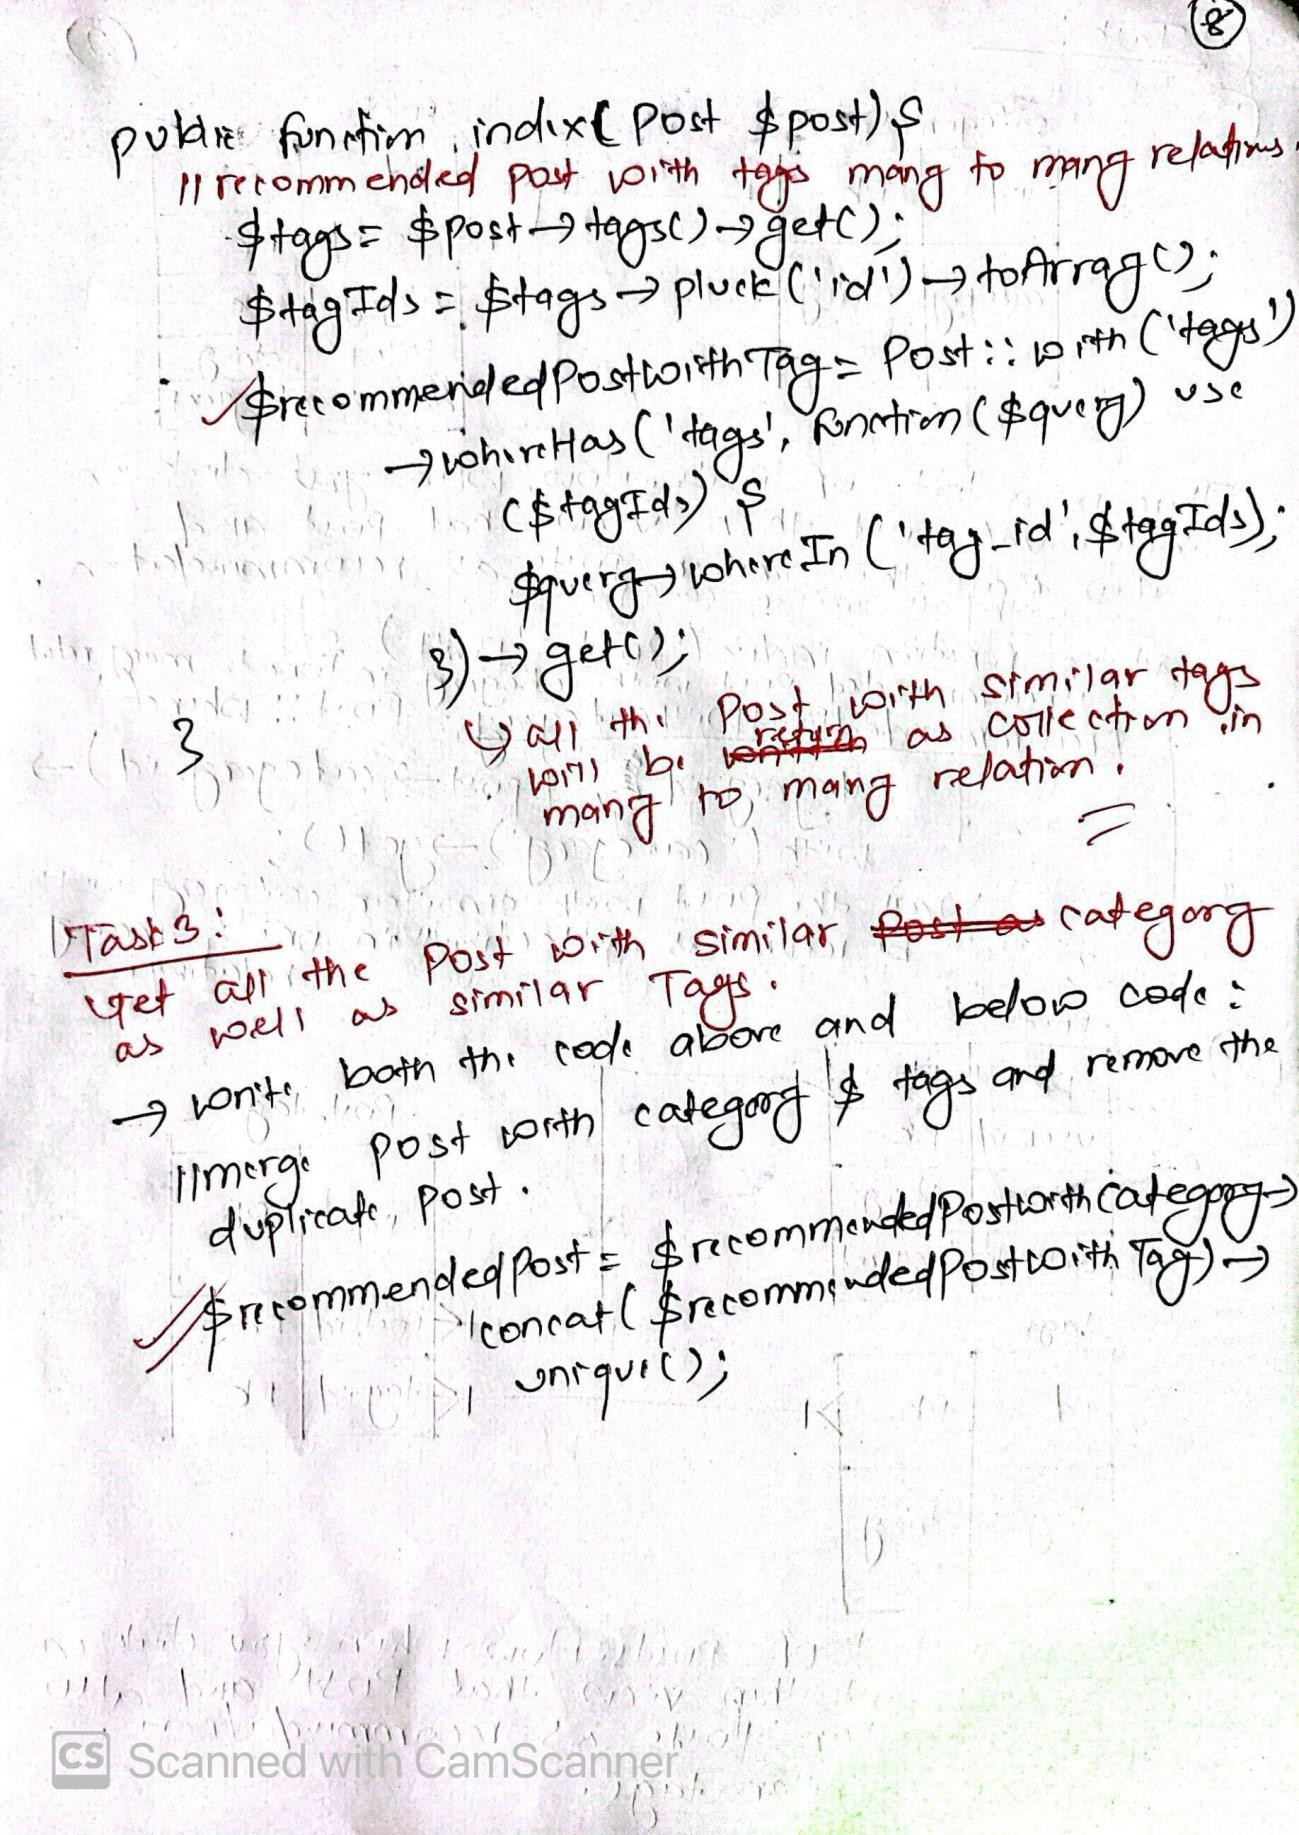 8
public function index( Post $post) {
// recommended post with tags many to many relations.
$tags = $post → tags() → get();
$tagIds = $tags → pluck('id') → toArray();
$recommendedPostwithTag = Post:: with('tags')
→ whereHas('tags', function ($query) use
($tagIds) {
$query → whereIn ('tag_id', $tagIds);
}) → get();
↳ all the Post with similar tags
will be return as collection in
many to many relation.
}
Task 3:
Get all the Post with similar Post as category
as well as similar Tags.
→ write both the code above and below code:
// merge post with category & tags and remove the
duplicate post.
$recommendedPost = $recommendedPostwithCategory→
concat( $recommendedPostwithTag) →
unique();
CS Scanned with CamScanner